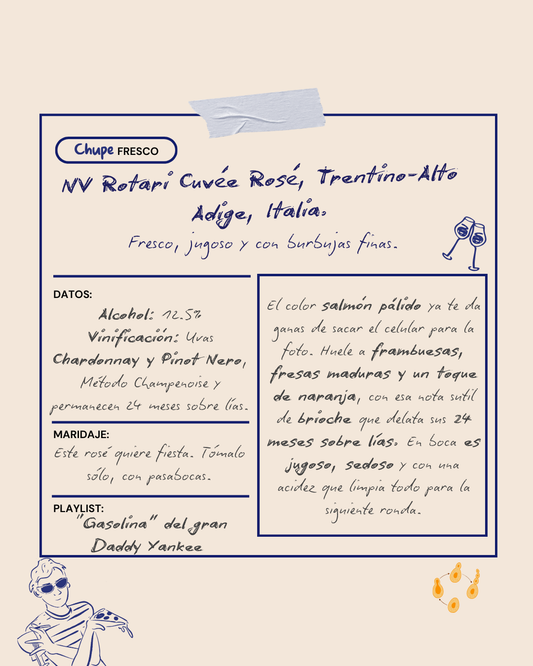 Chupe FRESCO
NV Rotari Cuvée Rosé, Trentino-Alto
Adige, Italia.
Fresco, jugoso y con burbujas finas.
DATOS:
Alcohol: 12.5%
Vinificación: Uvas
Chardonnay y Pinot Nero,
Método Champenoise y
permanecen 24 meses sobre lías.
MARIDAJE:
Este rosé quiere fiesta. Tómalo
sólo, con pasabocas.
PLAYLIST:
"Gasolina" del gran
Daddy Yankee
El color salmón pálido ya te da
ganas de sacar el celular para la
foto. Huele a frambuesas,
fresas maduras y un toque
de naranja, con esa nota sutil
de brioche que delata sus 24
meses sobre lías. En boca es
jugoso, sedoso y con una
acidez que limpia todo para la
siguiente ronda.